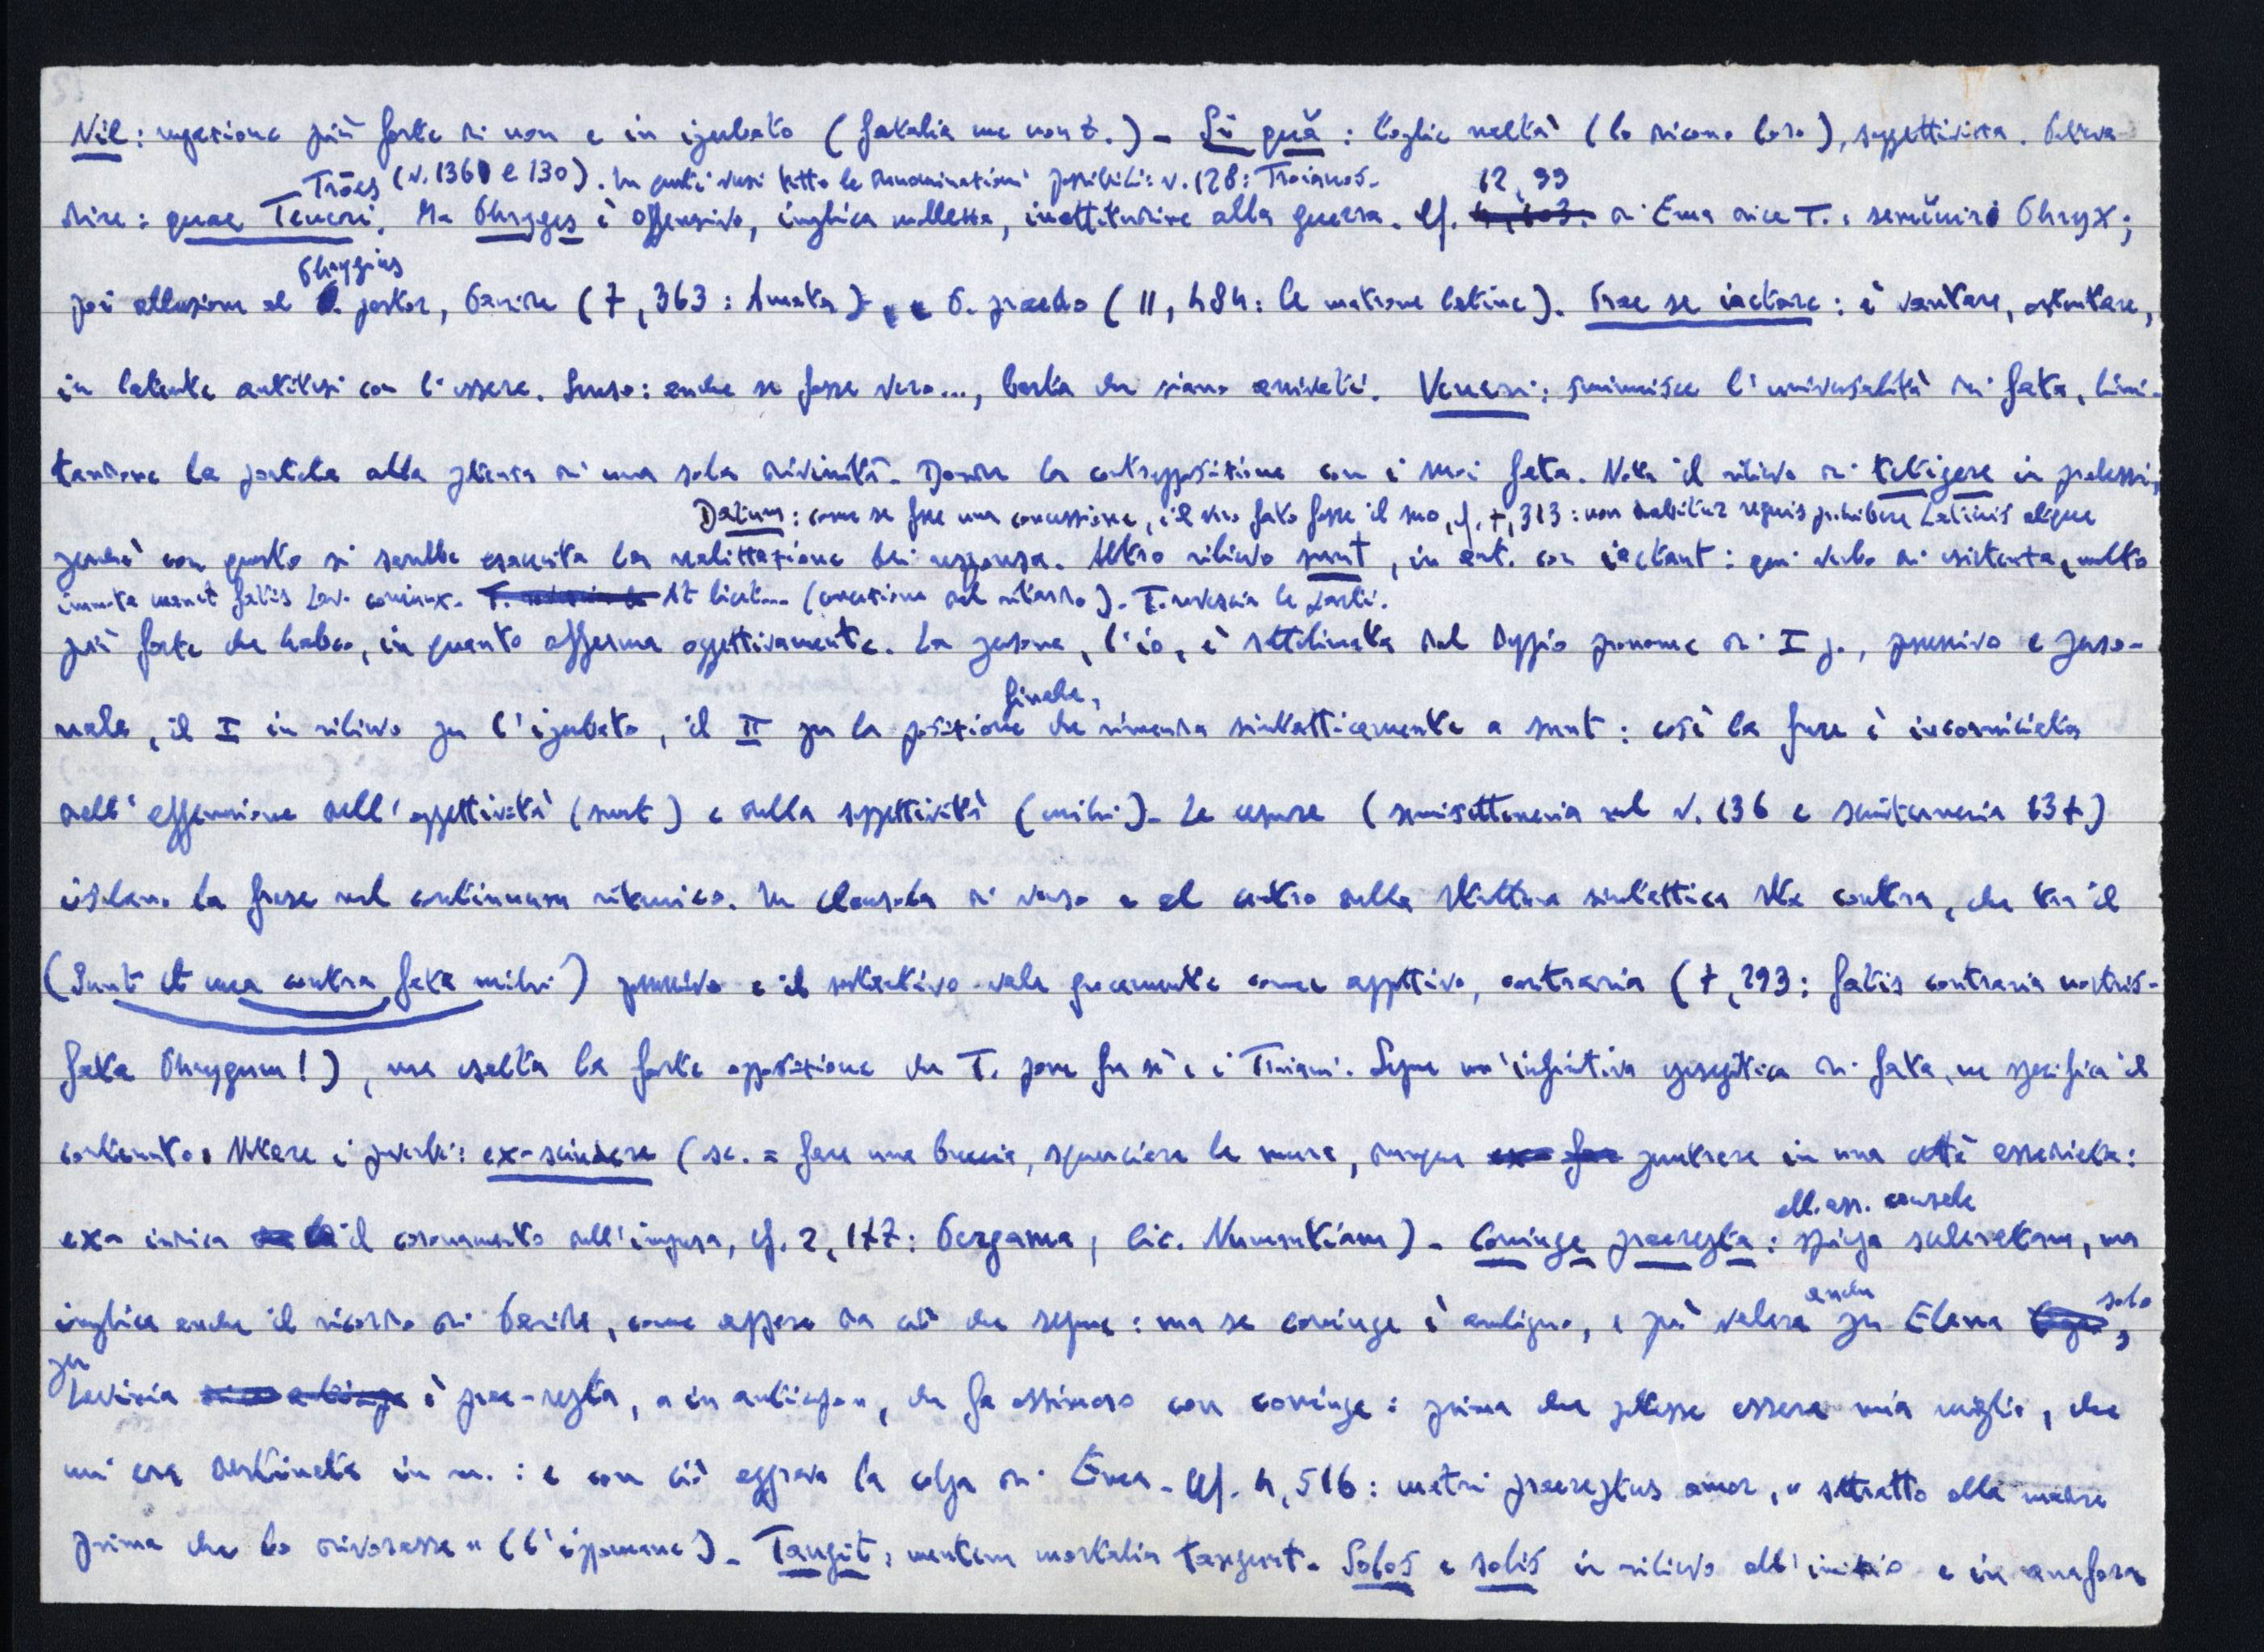 Nil: negazione più forte di non e in iperbato (fatalia me non t.) - Si qua: toglie realtà (lo dicono loro), soggettivista. Poteva
Trões (v. 136 e 130). In questi versi tutte le denominazioni possibili: v. 128: Troianos.
12, 99
dire: quae Teucri. Ma Phryges è offensivo, implica mollezza, inattitudine alla guerra. Cf. di Enea dice T.: semiviri Phryx;
Phrygius
poi allusione al pastor, Paride (7, 363: Amata), P. praedo (11, 484: le matrone latine). Prae se iactare: è vantare, ostentare,
in latente antitesi con l'essere. Senso: anche se fosse vero..., basta che siano arrivati. Veneri: sminuisce l'universalità di fata, limi-
tandone la portata alla potenza di una sola divinità. Donde la contrapposizione con i suoi fata. Nota il rilievo di tetigere in prolessi,
Datum: come se fosse una concessione, il vero fato fosse il suo, cf. 7, 313: non dabitur regnis prohibere Latinis atque
perché con questo si sarebbe esaurita la realizzazione dei responsa. Altro rilievo sunt, in ant. con iactant: qui verbo di esistenza, molto
immota manet fatis Lav. coniux. At licet... (concessione del ritardo). T. rovescia le parti.
più forte che habeo, in quanto afferma oggettivamente. La persona, l'io, è sottolineata dal doppio pronome di I p., possessivo e perso-
finale,
nale, il I in rilievo per l'iperbato, il II per la posizione che rimanda sintatticamente a sunt: così la frase è incorniciata
dall'affermazione dell'oggettività (sunt) e della soggettività (mihi). Le cesure (semisettenaria nel v. 136 e semiternaria 137)
isolano la frase nel continuum ritmico. In clausola di verso e al centro della struttura sintattica sta contra, che tra il
(Sunt et mea contra fata mihi) possessivo e il sostantivo vale grecamente come aggettivo, contraria (7, 293: fatis contraria nostris
fata Phrygum!), ma esalta la forte opposizione che T. pone fra sé e i Troiani. Segue un'infinitiva epesegetica di fata, ne specifica il
contenuto. Notare i preverbi: ex-scindere (sc. = fare una breccia, squarciare le mura, dunque penetrare in una città assediata:
ex- indica il coronamento dell'impresa, cf. 2, 177: Pergama, Cic. Numantiam) - Coniuge praerepta: spiega sceleratam, ma
all. ass. causale
implica anche il ricordo di Paride, come appare da ciò che segue: ma se coniuge è ambiguo, e può valere anche per Elena, solo
per
Lavinia è prae-repta, "in anticipo", che fa ossimoro con coniuge: prima che potesse essere mia moglie, che
mi era destinata in m.: e con ciò aggrava la colpa di Enea. Cf. 4, 516: matri praereptus amor, "sottratto alla madre
prima che lo divorasse" (l'ippomane). Tangit: mentem mortalia tangunt. Solos e solis in rilievo all'inizio e in anafora